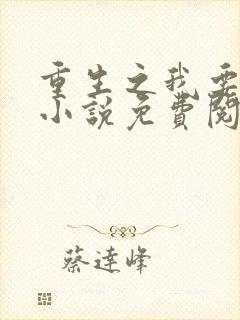 重生之我要
小說免費閱
蔡達峰